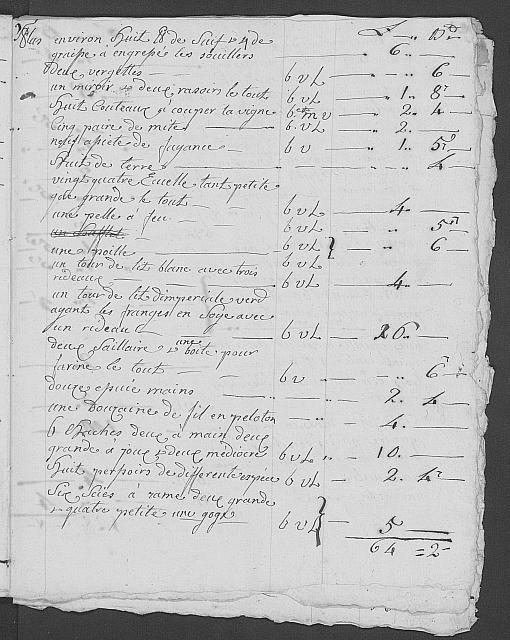 environ huit lb de Suif & 4 de
graisse à engresée les souillers — 6..
deux vergettes b v L — 6 —
un miroir & deux rasoirs le tout b v L — 1.. 8
huit Couteaux à couper la vigne — 2.. 4 —
Cinq paire de mites — b v L — 2.. —
neuf apiéte de fayance — b v — 1.. 5
huit de terre — 4
vingt quatre Ecuelle tant petite
que grande le tout — b v L — 4.. —
une pelle à feu — b v L — 5
une poille — b v L — 6
un tour de lit blanc avec trois b v L
rideaux — b v L — 4.. —
un tour de lit dimperiale verd
ayant les franges en Soye avec
un rideau — b v L — 26.. —
deux Saillaire & une boite pour
farine le tout — b v — 6
douze epuie mains — 2.. 4 —
une Douzaine de fil en peloton — 4.. —
6 haches deux à main deux
grande a joux & deux médiocre b v L — 10.. —
huit perçoirs de differente espéce b v L — 2.. 4
Six Sciés à rame deux grande
& quatre petite une goge — b v L — 5 —
64 = 2